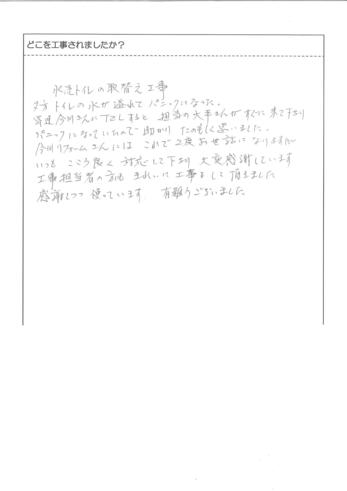 どこを工事されましたか？
水洗トイレの取替え工事
夕方トイレの水が溢れてパニックになった。
早速今川さんにTELすると 担当の大手さんがすぐに来て下さり
パニックになっていたので助かり たのもしく思いました。
今川リフォームさんには これで2度お世話になりますが
いつも こころ良く 対応して下さり 大変感謝しています
工事担当者の方も きれいに工事をして頂きました
感謝しつつ 使っています 有難うございました